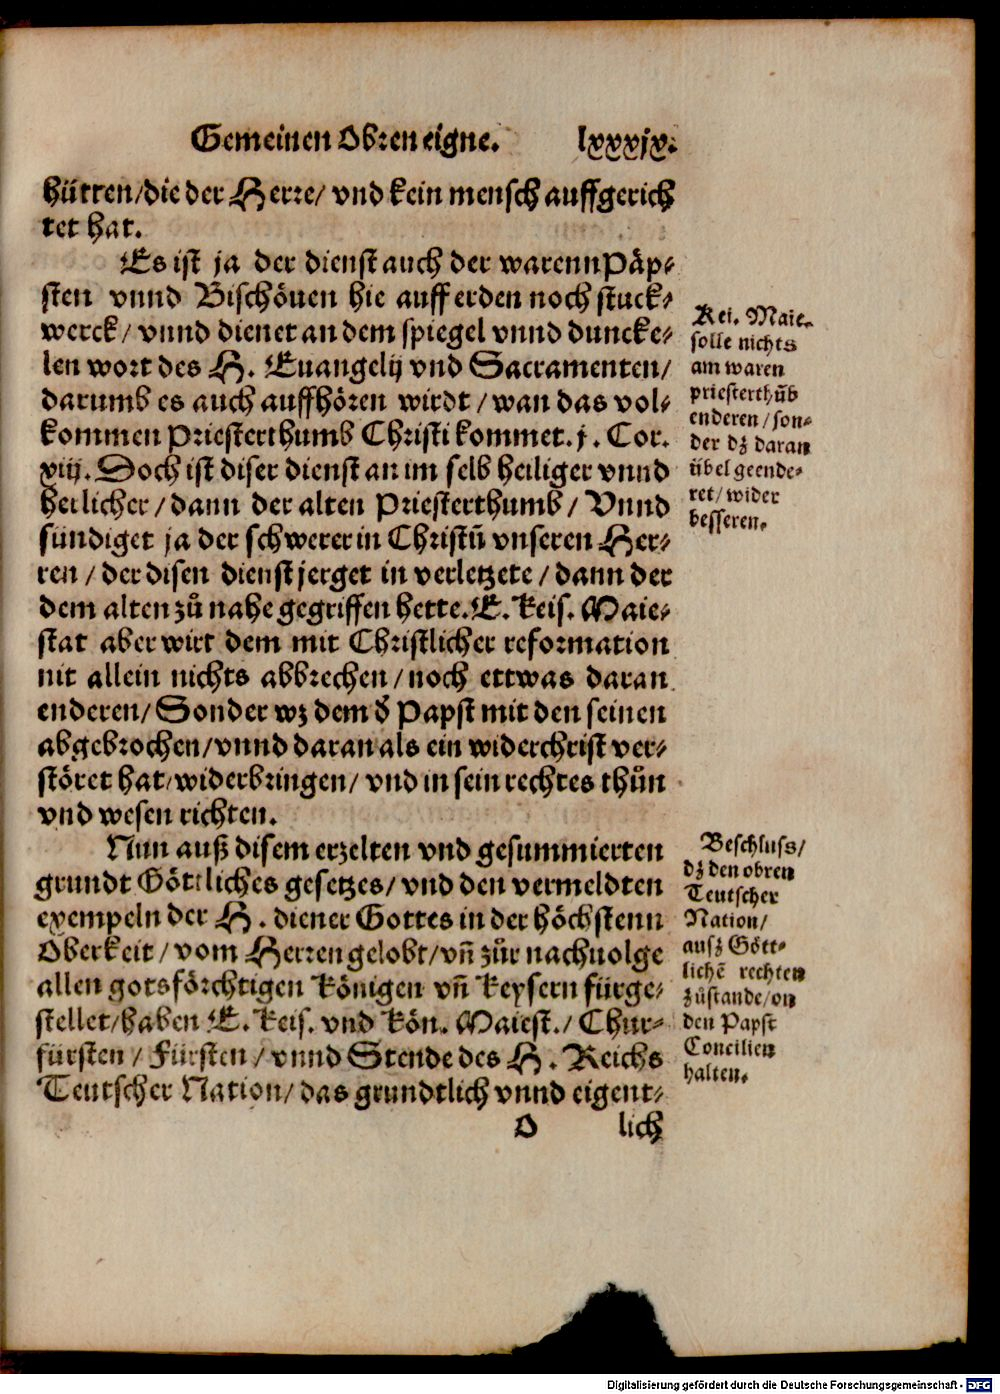 Gemeinen Obren eigne. lxxxix.
hütten/die der Herre/ vnd kein mensch auffgerich
tet hat.
Es ist ja der dienst auch der warenn Päp⸗
sten vnnd Bischöuen hie auff erden noch stuck⸗
werck/ vnnd dienet an dem spiegel vnnd duncke⸗
len wort des H. Euangelij vnd Sacramenten/
darumb es auch auffhören wirdt/ wan das vol⸗
kommen Priesterthumb Christi kommet. j. Cor.
xiij. Doch ist diser dienst an im selb heiliger vnnd
heilicher/ dann der alten Priesterthumb/ Vnnd
sündiget ja der schwerer in Christū vnseren Her⸗
ren/ der disen dienst jerget in verletzete/ dann der
dem alten zů nahe gegriffen hette. E. Keis. Maie⸗
stat aber wirt dem mit Christlicher reformation
nit allein nichts abbrechen/ noch ettwas daran
enderen/ Sonder wz dem d̓ Papst mit den seinen
abgebrochen/ vnnd daran als ein widerchrist ver⸗
störet hat/ widerbringen/ vnd in sein rechtes thůn
vnd wesen richten.
Nun auß disem erzelten vnd gesummierten
grundt Göttliches gesetzes/ vnd den vermeldten
exempeln der H. diener Gottes in der höchstenn
Oberkeit/ vom Herren gelobt/ vñ zůr nachuolge
allen gotsförchtigen Königen vñ Keysern fürge⸗
stellet/ haben E. Keis. vnd Kön. Maiest./ Chur⸗
fürsten/ Fürsten/ vnnd Stende des H. Reichs
Teutscher Nation/ das grundtlich vnnd eigent⸗
O lich
Kei. Maie.
solle nichts
am waren
priesterthūb
enderen/ son⸗
der dz daran
übel geende⸗
ret/ wider
besseren.
Beschluss/
dz den obren
Teutscher
Nation/
ausz Gött⸗
lichē rechten
zůstande/ on
den Papst
Concilien
halten.
Digitalisierung gefördert durch die Deutsche Forschungsgemeinschaft - DFG